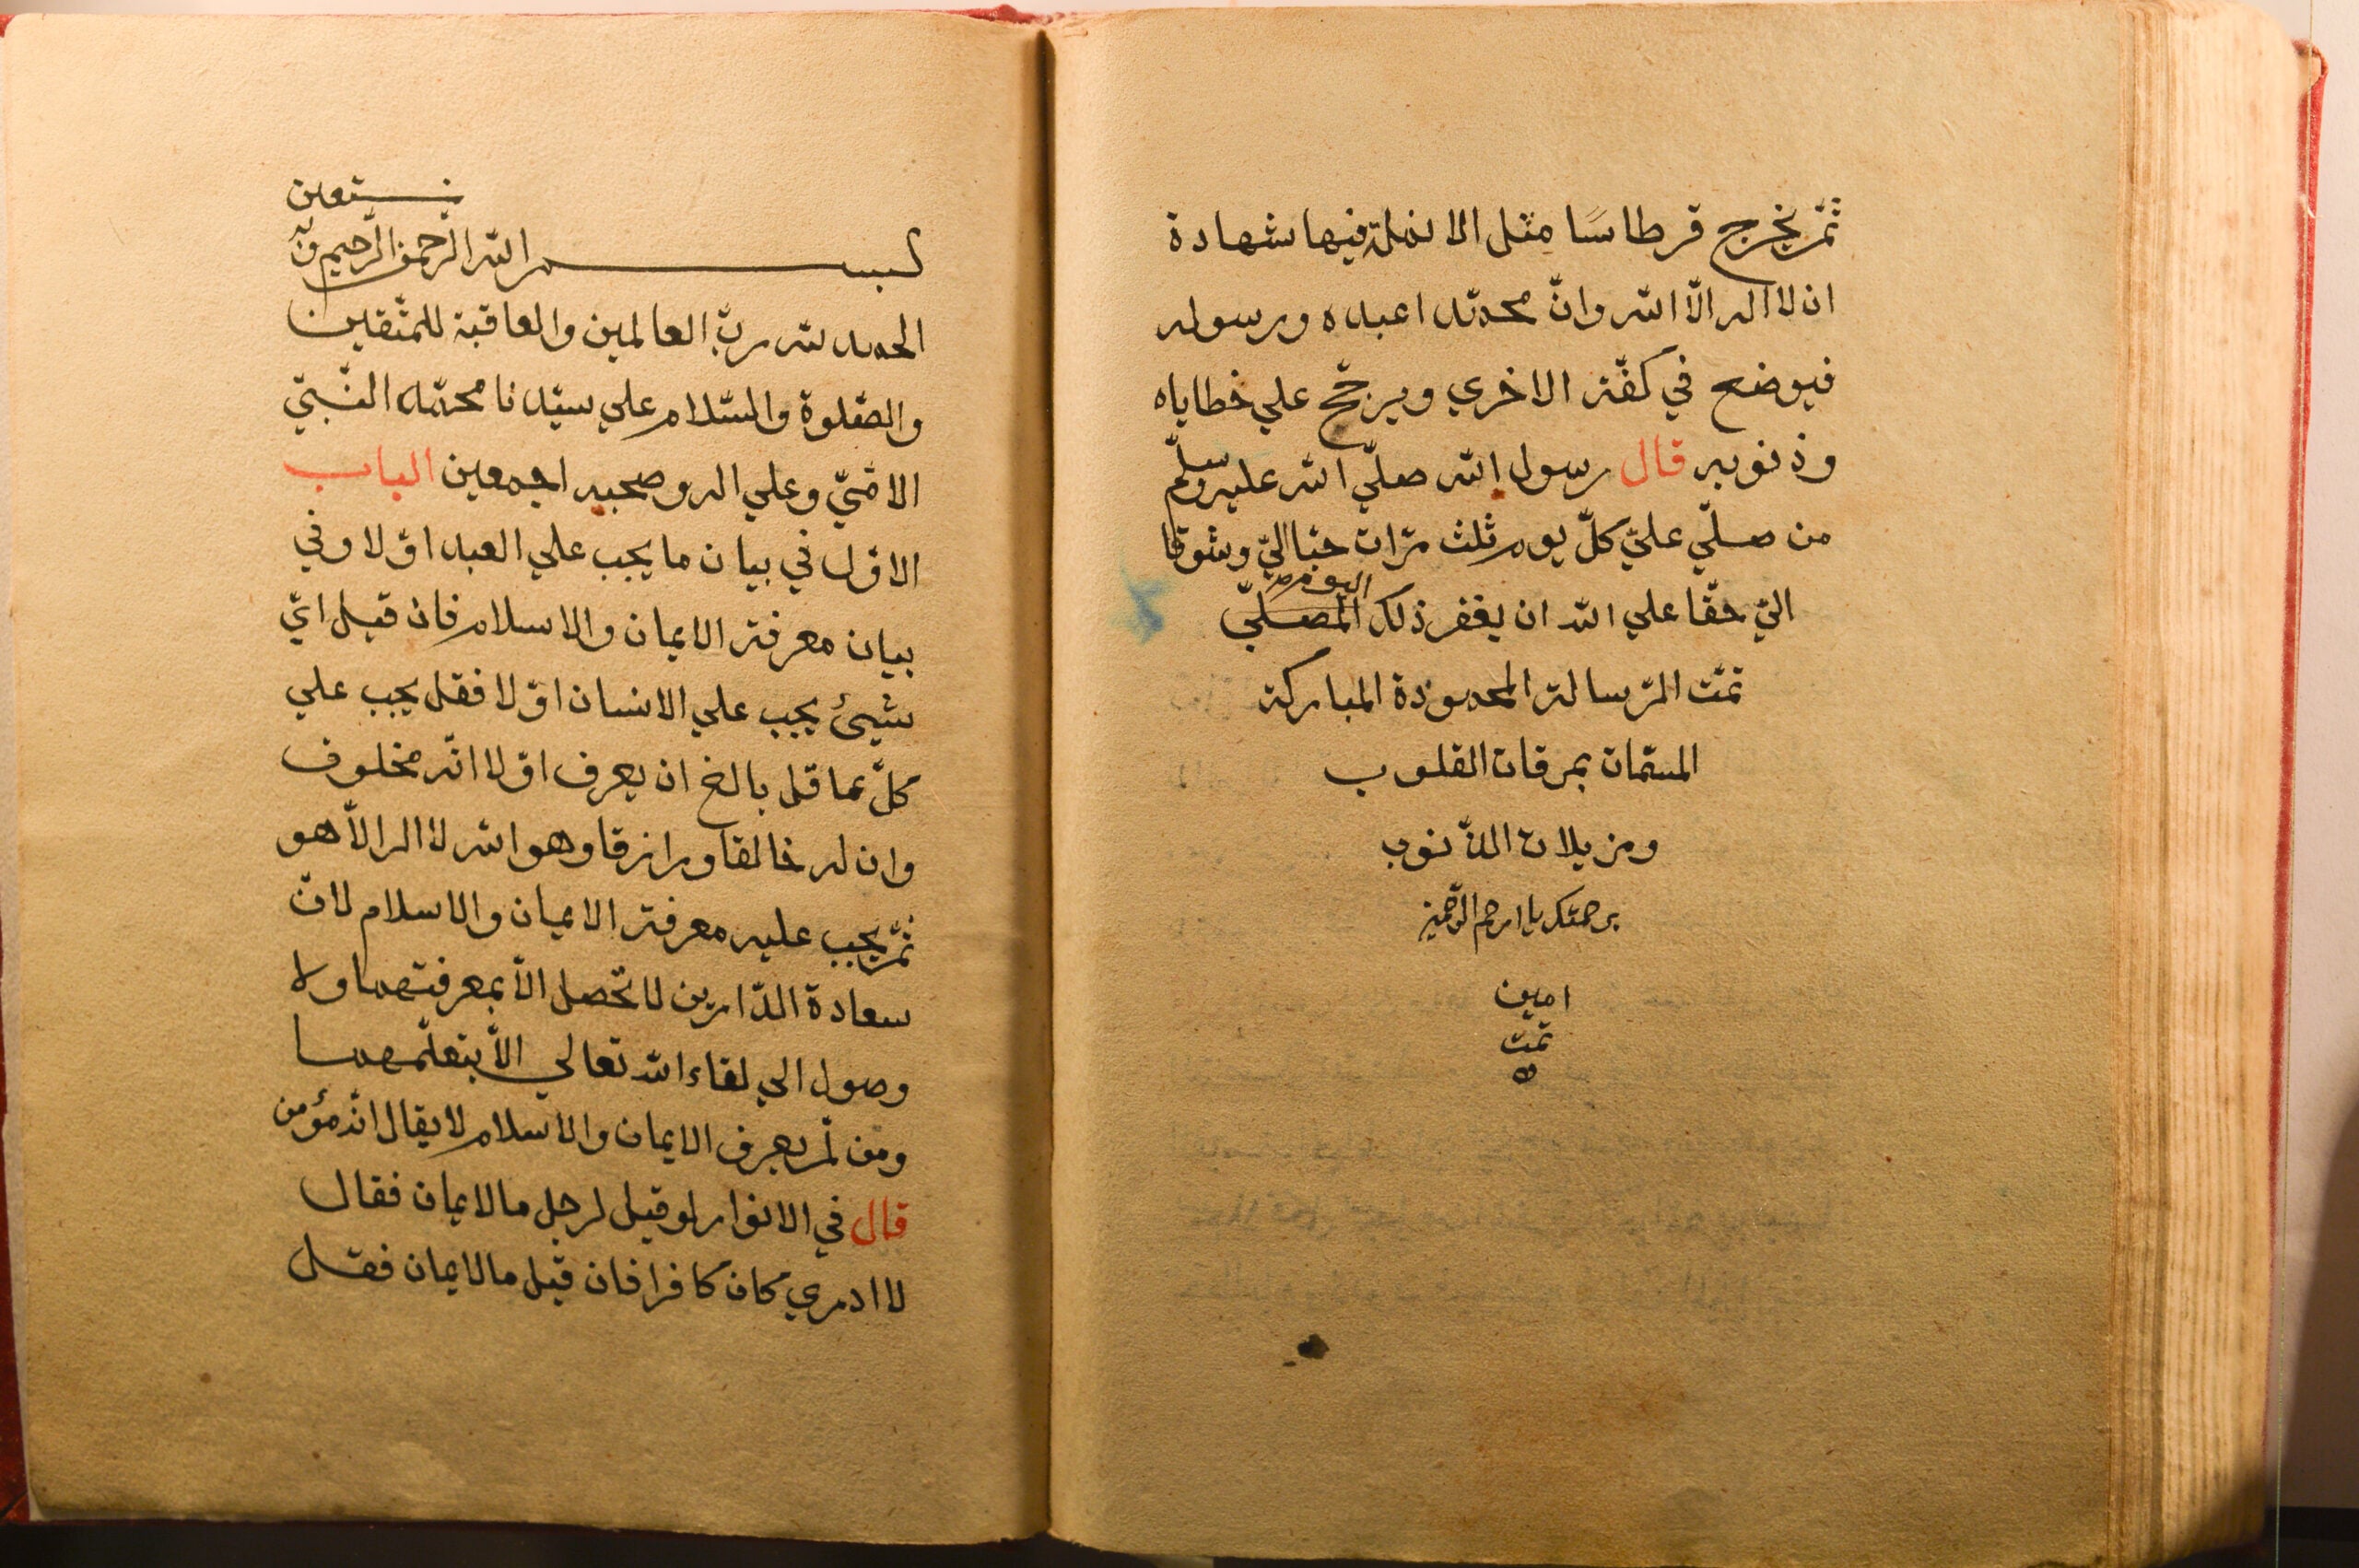 ثمّ يخرج قرطاسًا مثل الانملة فيها شهادة
ان لا اله الّا الله وانّ محمّدا عبده ورسوله
فيوضع في كفّة الاخري ويرجّح علي خطاياه
وذنوبه قال رسول الله صلّي الله عليه وسلّم
من صلّي عليّ كلّ يوم ثلث مرّات حبّا اليّ وشوقا
اليّ حقّا علي الله ان يغفر ذلك المصلّي
اليوم
تمّت الرّسالة المحمودة المباركة
المسمّات بمرقات القلوب
ومزيلات الذّنوب
برحمتك يا ارحم الرّحمين
امين
تمت
بسم الله الرّحمن الرّحيم وبه
نستعين
الحمد لله ربّ العالمين والعاقبة للمتّقين
والصّلوة والسّلام علي سيّدنا محمّد النّبيّ
الامّيّ وعلي اله وصحبه اجمعين الباب
الاوّل في بيان ما يجب علي العبد اوّلا وفي
بيان معرفة الايمان والاسلام فان قيل ايّ
شيئ يجب علي الانسان اوّلا فقل يجب علي
كلّ عاقل بالغ ان يعرف اوّلا انّه مخلوق
وان له خالقا ورازقا وهو الله لا اله الّا هو
ثمّ يجب عليه معرفة الايمان والاسلام لانّ
سعادة الدّارين لا تحصل الّا بمعرفتهما ولا
وصول الي لقاء الله تعالي الّا بتعلّمهما
ومن لم يعرف الايمان والاسلام لا يقال انّه مؤمن
قال في الانوار لو قيل لرجل ما الايمان فقال
لا ادري كان كافرا فان قيل ما الايمان فقل